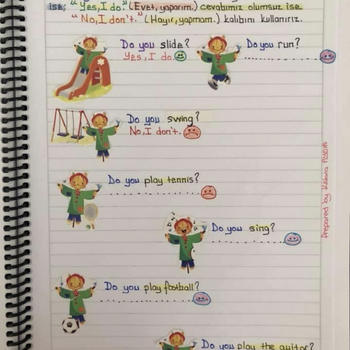 ise; "Yes, I do." (Evet, yaparım.) cevabımız olumsuz ise
"No, I don't." (Hayır, yapmam.) kalıbını kullanırız.
Do you slide?
Yes, I do
Do you run?
Do you swing?
No, I don't.
Do you play tennis?
Do you sing?
Do you play football?
Do you play the guitar?
Prepared by Rabia